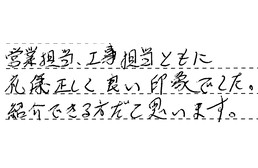 営業担当、工事担当ともに
礼儀正しく良い印象でした。
紹介できる方だと思います。